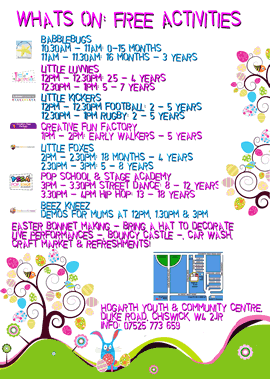 WHATS ON: FREE ACTIVITIES
BABBLEBUGS
10.30AM - 11AM 0-15 MONTHS
11AM - 11.30AM 16 MONTHS - 3 YEARS
LITTLE LUVVIES
12PM - 12.30PM 2.5 - 4 YEARS
12.30PM - 1PM: 5 - 7 YEARS
LITTLE KICKERS
12PM - 12.30PM FOOTBALL: 2 - 5 YEARS
12.30PM - 1PM RUGBY: 2 - 5 YEARS
CREATIVE FUN FACTORY
1PM - 2PM: EARLY WALKERS - 5 YEARS
LITTLE FOXES
2PM - 2.30PM: 18 MONTHS - 4 YEARS
2.30PM - 3PM: 5 - 8 YEARS
POP SCHOOL & STAGE ACADEMY
3PM - 3.30PM STREET DANCE: 8 - 12 YEARS
3.30PM - 4PM HIP HOP: 13 - 18 YEARS
BEEZ KNEEZ
DEMOS FOR MUMS AT 12PM, 1.30PM & 3PM
EASTER BONNET MAKING - BRING A HAT TO DECORATE
LIVE PERFORMANCES -, BOUNCY CASTLE -, CAR WASH,
CRAFT MARKET & REFRESHMENTS!
HOGARTH YOUTH & COMMUNITY CENTRE,
DUKE ROAD, CHISWICK, W4 2JR
INFO: 07525 773 659